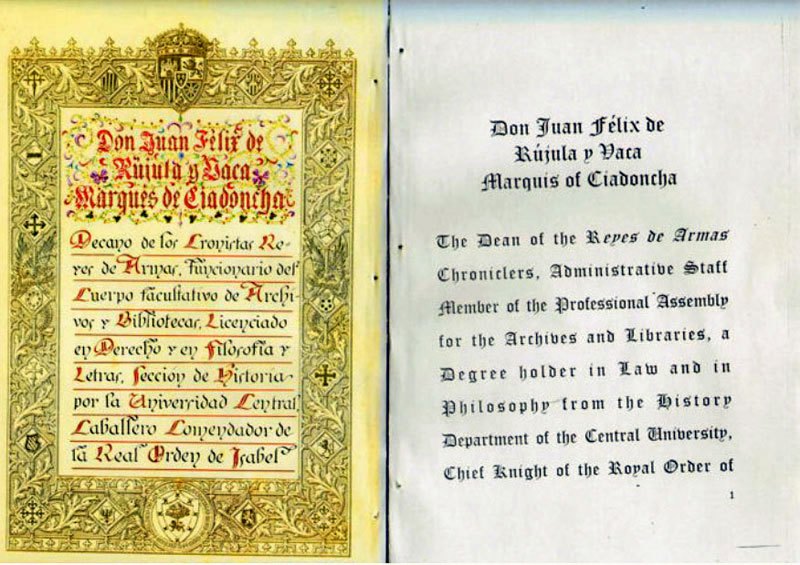 Don Juan Félix de
Rújula y Vaca
Marqués de Ciadoncha
Decano de los Cronistas Re-
yes de Armas, Funcionario del
Cuerpo facultativo de Archi-
vos y Bibliotecas, Licenciado
en Derecho y en Filosofía y
Letras, Sección de Historia
por la Universidad Central,
Caballero Comendador de
la Real Orden de Isabel
Don Juan Félix de
Rújula y Vaca
Marquis of Ciadoncha
The Dean of the Reyes de Armas
Chroniclers, Administrative Staff
Member of the Professional Assembly
for the Archives and Libraries, a
Degree holder in Law and in
Philosophy from the History
Department of the Central University,
Chief Knight of the Royal Order of
1